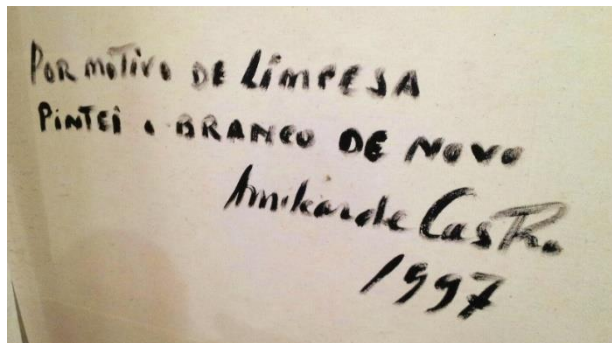 POR MOTIVO DE LIMPESA
PINTEI O BRANCO DE NOVO
Amilcar de Castro
1997